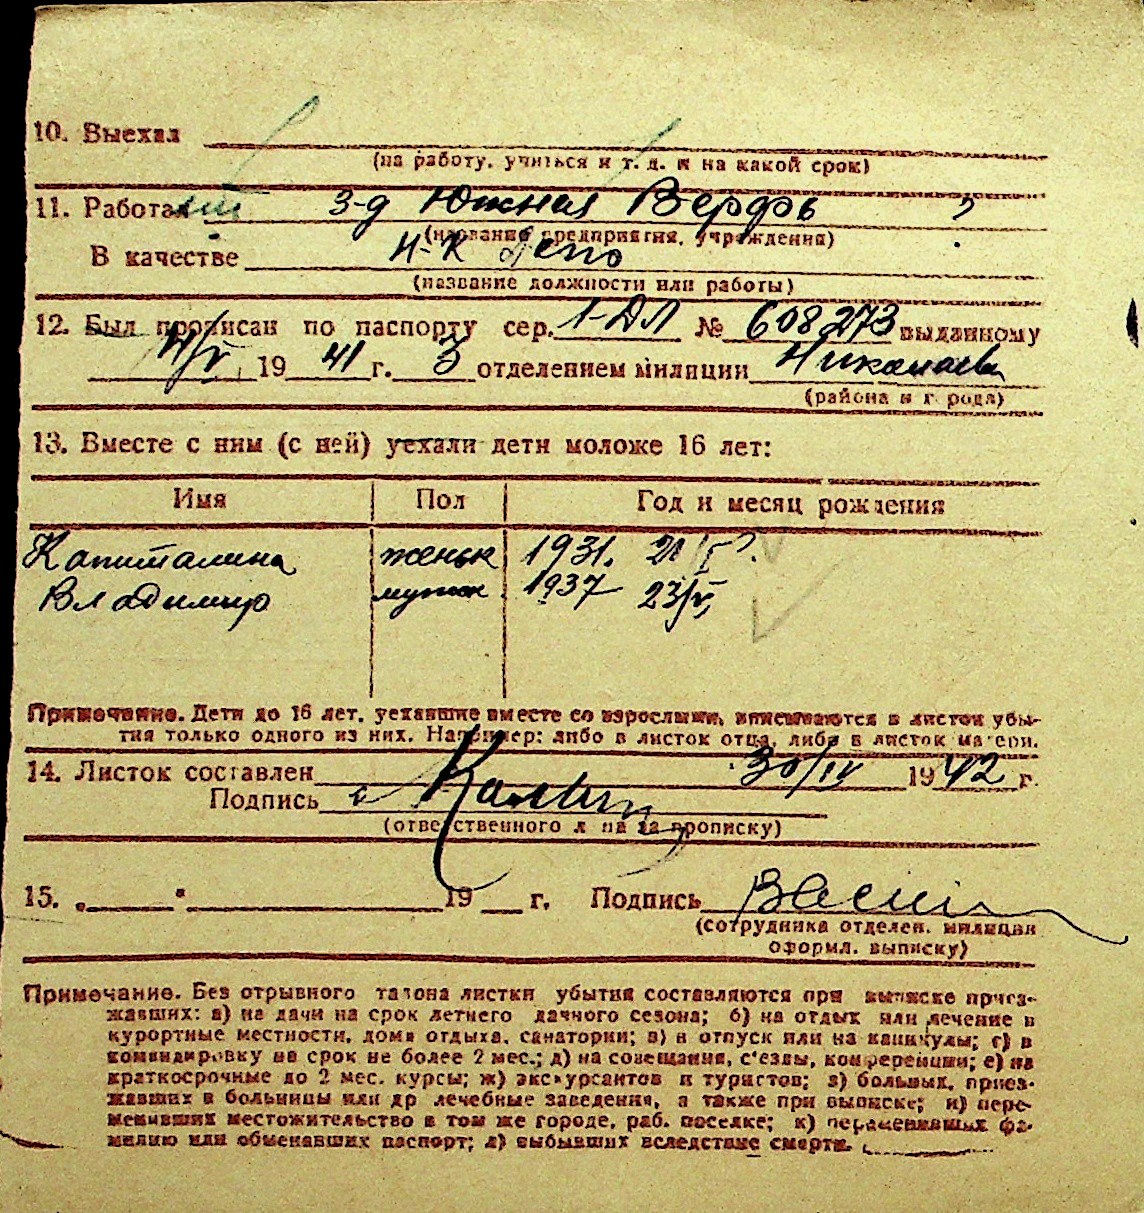 10. Выехал
(на работу, учиться и т. д. и на какой срок)
11. Работает З-д Южная Верфь
(название предприятия, учреждения)
В качестве Н-к Депо
(название должности или работы)
12. Был прописан по паспорту сер. 1-ДЛ № 608273 выданному
4/V 1941 г. 3 отделением милиции Николаева
(района и города)
13. Вместе с ним (с ней) уехали дети моложе 16 лет:
Имя Пол Год и месяц рождения
Капиталина женьк 1931. 21/I
Владимир мужск 1937 23/V
Примечание. Дети до 16 лет, уехавшие вместе со взрослыми, вписываются в листок убы-
тия только одного из них. Например: либо в листок отца, либо в листок матери.
14. Листок составлен 30/IV 1942 г.
Подпись
(ответственного лица за прописку)
15. „ “ 19 г. Подпись
(сотрудника отделен. милиции
оформл. выписку)
Примечание. Без отрывного талона листки убытия составляются при выписке приез-
жавших: а) на дачи на срок летнего дачного сезона; б) на отдых или лечение в
курортные местности, дома отдыха, санатории; в) в отпуск или на каникулы; г) в
командировку на срок не более 2 мес.; д) на совещания, с'езды, конференции; е) на
краткосрочные до 2 мес. курсы; ж) экскурсантов и туристов; з) больных, приез-
жавших в больницы или др лечебные заведения, а также при выписке; и) пере-
менивших местожительство в том же городе, раб. поселке; к) переменивших фа-
милию или обменавших паспорт; л) выбывших вследствие смерти.